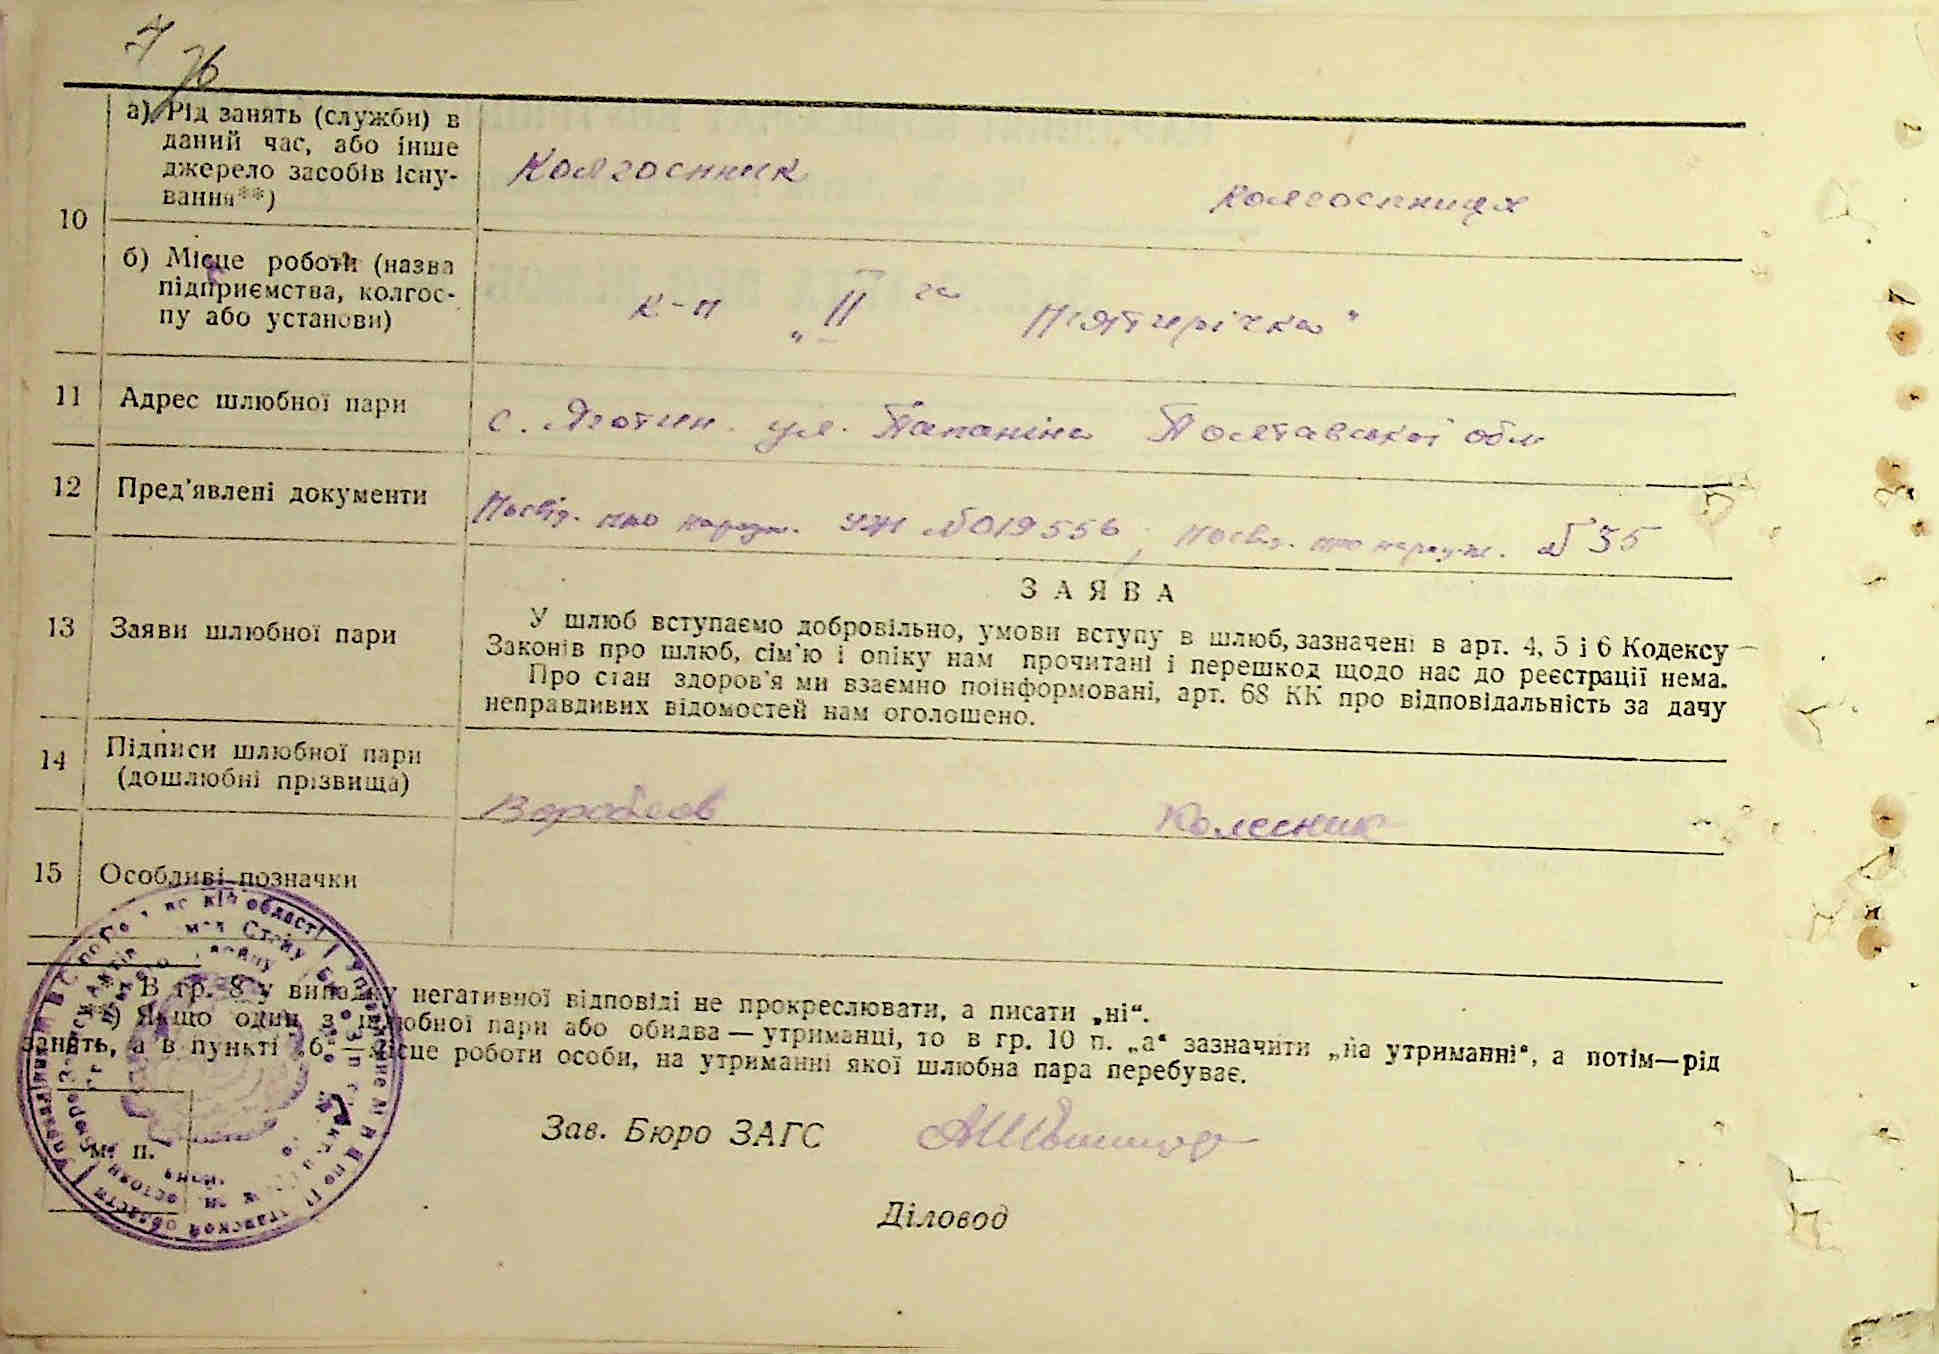 76
10
а) Рід занять (служби) в
даний час, або інше
джерело засобів існу-
вання**)
Колгоспник
колгоспниця
б) Місце роботи (назва
підприємства, колгос-
пу або установи)
к-п „II га Пятирічка"
11 Адрес шлюбної пари
с. Яготин. ул. Папаніна Полтавської обл
12 Пред'явлені документи
Посвід. про народж. УЖ № 019556; Посвід. про народж. № 35
13 Заяви шлюбної пари
ЗАЯВА
У шлюб вступаємо добровільно, умови вступу в шлюб, зазначені в арт. 4, 5 і 6 Кодексу
Законів про шлюб, сім'ю і опіку нам прочитані і перешкод щодо нас до реєстрації нема.
Про стан здоров'я ми взаємно поінформовані, арт. 68 КК про відповідальність за дачу
неправдивих відомостей нам оголошено.
14 Підписи шлюбної пари
(дошлюбні прізвища)
Воробьов
Колесник
15 Особливі позначки
*) В гр. 8 у випадку негативної відповіді не прокреслювати, а писати „ні“.
**) Якщо один з шлюбної пари або обидва — утриманці, то в гр. 10 п. „а“ зазначити „на утриманні“, а потім—рід
занять, а в пункті „б“ — місце роботи особи, на утриманні якої шлюбна пара перебуває.
Зав. Бюро ЗАГС
м. п.
Діловод